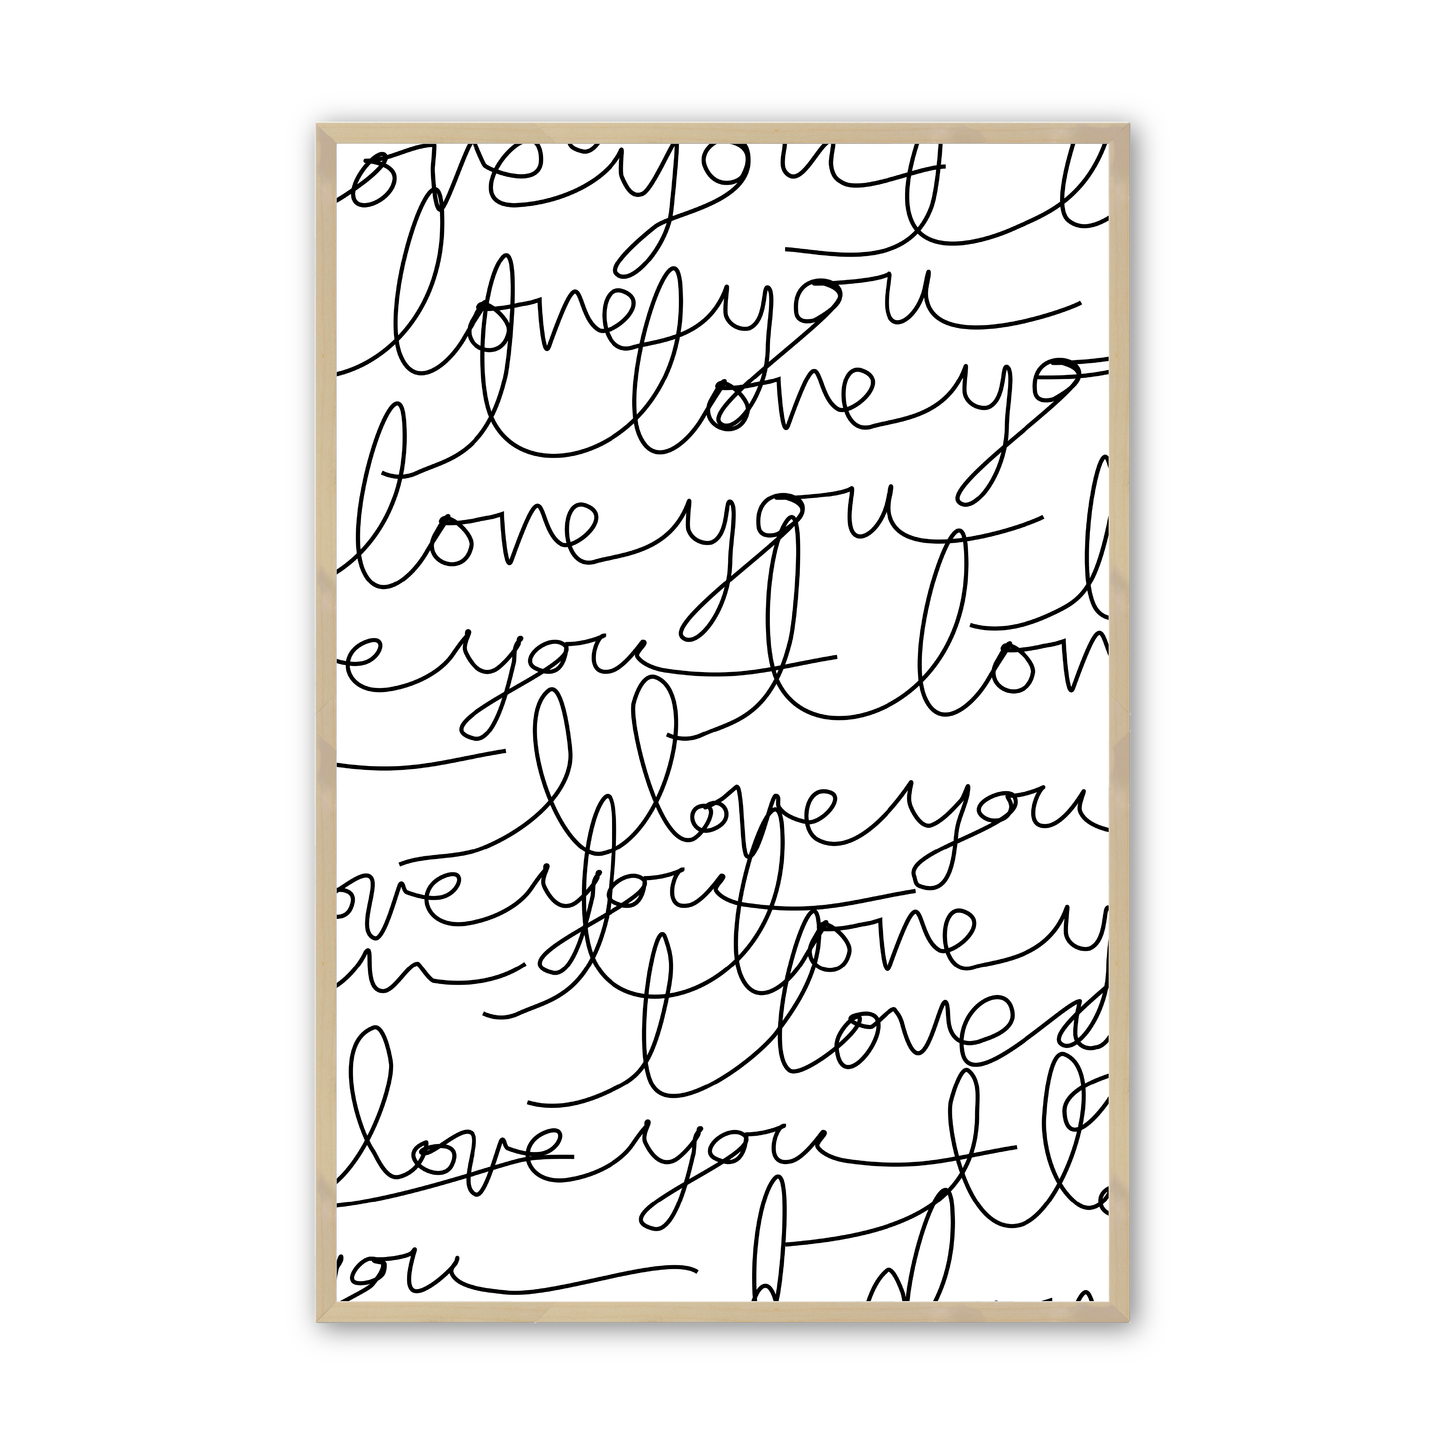 love you I l
love you
I love yo
love you I l
e you I lon
I love you
ove you I love y
u I love
love you I lo
you I l